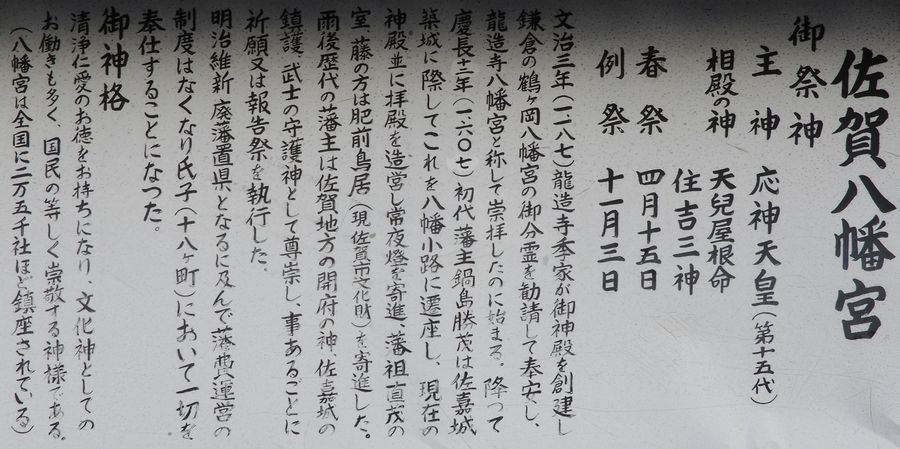 佐賀八幡宮
御祭神
主神　応神天皇（第十五代）
相殿の神　天兒屋根命
住吉三神
春祭　四月十五日
例祭　十一月三日
文治三年（一一八七）龍造寺季家が御神殿を創建し
鎌倉の鶴ヶ岡八幡宮の御分霊を勧請して奉安し、
龍造寺八幡宮と称して崇拝したのに始まる。降って
慶長十二年（一六〇七）初代藩主鍋島勝茂は佐嘉城
築城に際してこれを八幡小路に遷座し、現在の
神殿並に拝殿を造営し常夜燈を寄進、藩祖直茂の
室、藤の方は肥前鳥居（現佐賀市文化財）を寄進した。
雨後歴代の藩主は佐賀地方の開府の神、佐嘉城の
鎮護、武士の守護神として尊崇し、事あるごとに
祈願又は報告祭を執行した、
明治維新廃藩置県となるに及んで藩費運営の
制度はなくなり氏子（十八ヶ町）において一切を
奉仕することになつた。
御神格
清浄仁愛のお徳をお持ちになり、文化神としての
お働きも多く、国民の等しく崇敬する神様である。
（八幡宮は全国に二万五千社ほど鎮座されている）